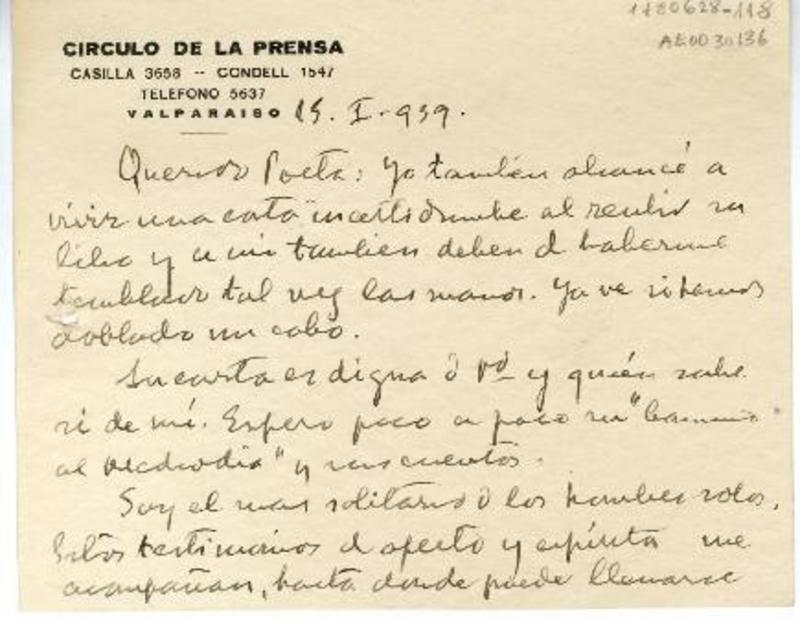 1180628-118
AE0030136
CIRCULO DE LA PRENSA
CASILLA 3658 -- CONDELL 1547
TELEFONO 5637
VALPARAISO 15. I-939.
Querido Poeta: Yo también alcancé a
vivir una corta incertidumbre al recibir su
libro y a mi también deben d haberme
temblado tal vez las manos. Ya ve si hemos
doblado un cabo.
Su carta es digna d Vd y quién sabe
si de mí. Espero poco a poco su "Camino
al mediodía" y sus cuentos.
Soy el mas solitario d los hombres solos.
Estos testimonios d afecto y espíritu me
acompañan, hasta donde puede llamarse